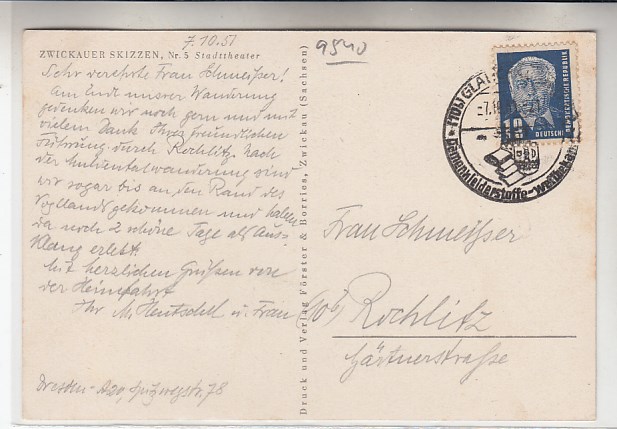 7.10.51
9540
ZWICKAUER SKIZZEN, Nr. 5 Stadttheater
Sehr verehrte Frau Schmeißer!
Am Ende unsrer Wanderung
gedenken wir noch gern und mit
vielem Dank Ihrer freundlichen
Führung durch Rochlitz. Nach
der Muldentalwanderung sind
wir sogar bis an den Rand des
Vogtlands gekommen und haben
da noch 2 schöne Tage als Aus-
klang erlebt.
Mit herzlichen Grüßen vor
der Heimfahrt
Ihr M. Hentschel u. Frau
Dresden-A20, Spitzwegstr. 78
Druck und Verlag Förster & Borries, Zwickau (Sachsen)
(10b) GLAU
-7.10.
Dederonfelderstoffe-weltbekannt
10
DEUTSCHE
DEMOKRATISCHE REPUBLIK
Frau Schmeisser
(10b) Rochlitz
Gärtnerstraße